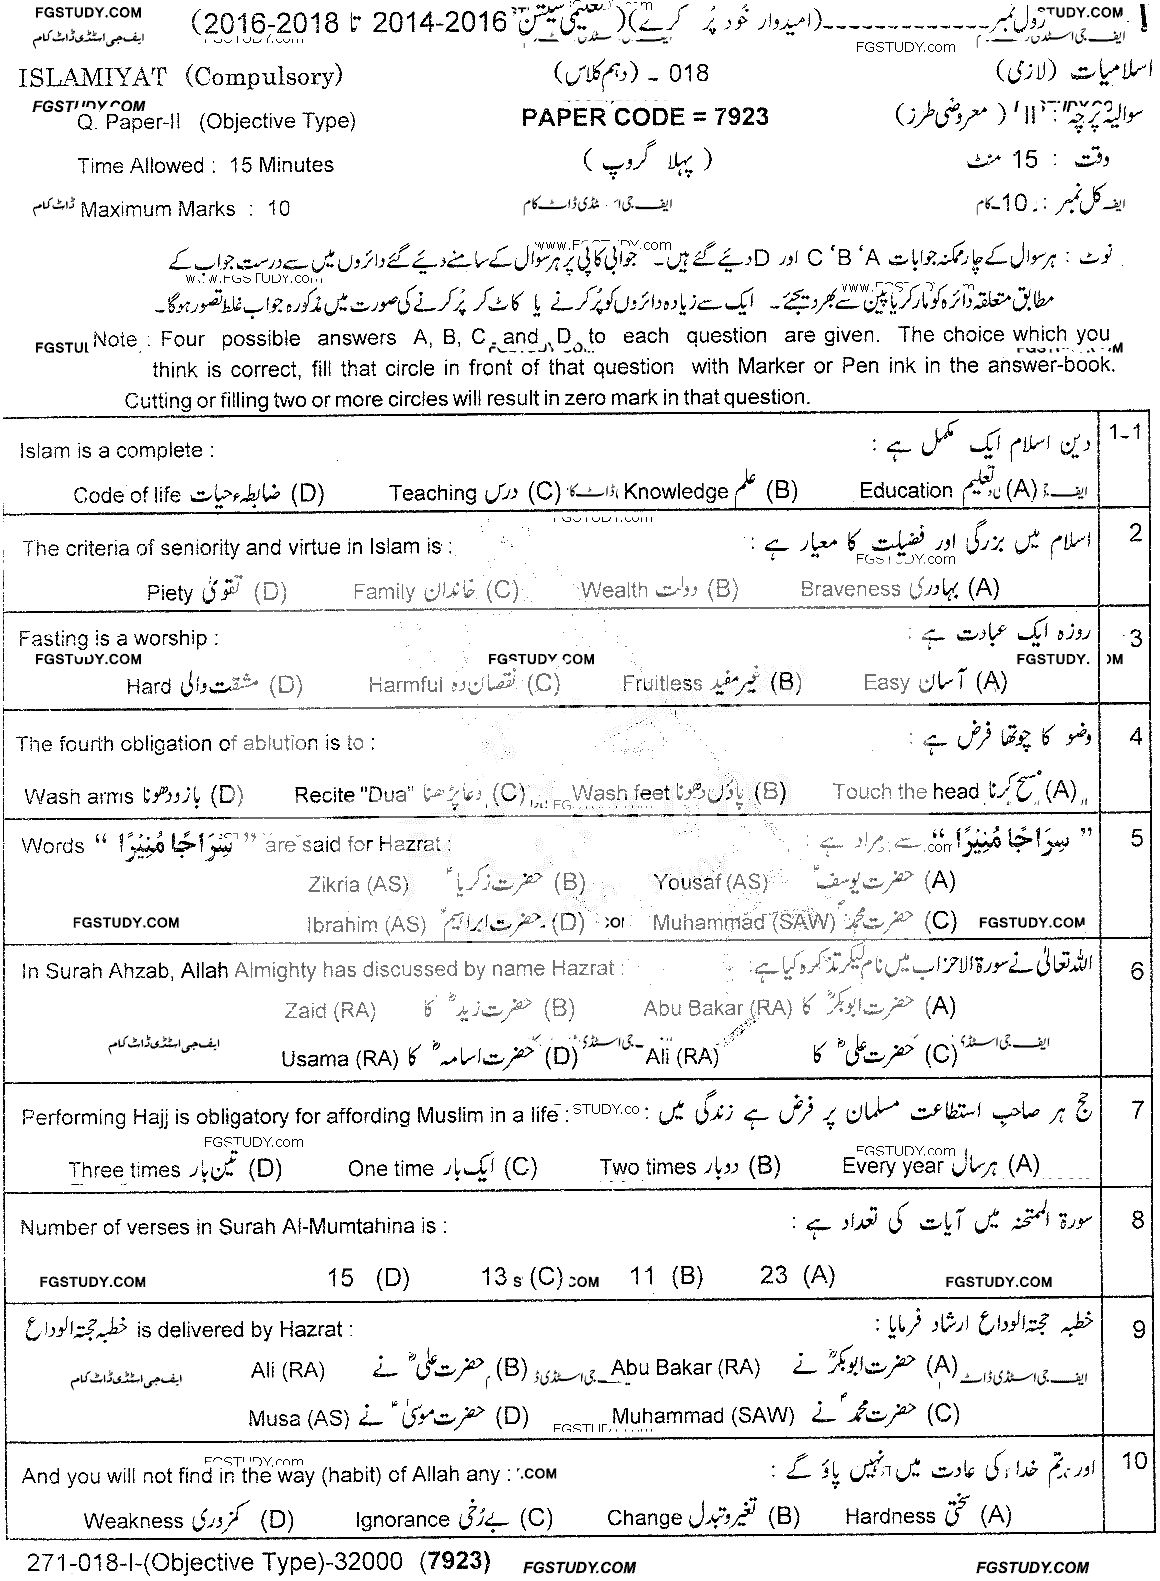 FGSTUDY.COM رول نمبر------------(امیدوار خود پُر کرے)(تعلیمی سیشن 2014-2016 تا 2016-2018) STUDY.COM
ایف جی اسٹڈی ڈاٹ کام FGSTUDY.com
ISLAMIYAT (Compulsory) 018 - (دہم کلاس) اسلامیات (لازمی)
FGSTUDY.COM
Q. Paper-II (Objective Type) PAPER CODE = 7923 سوالیہ پرچہ : II (معروضی طرز)
Time Allowed : 15 Minutes (پہلا گروپ) وقت : 15 منٹ
ڈاٹ کام Maximum Marks : 10 کل نمبر : 10
نوٹ : ہر سوال کے چار ممکنہ جوابات A ،B ،C اور D دیئے گئے ہیں۔ جوابی کاپی پر ہر سوال کے سامنے دیئے گئے دائروں میں سے درست جواب کے
مطابق متعلقہ دائرہ کو مارکر یا پین سے بھر دیجئے۔ ایک سے زیادہ دائروں کو پُر کرنے یا کاٹ کر پُر کرنے کی صورت میں مذکورہ جواب غلط تصور ہوگا۔
Note : Four possible answers A, B, C and D to each question are given. The choice which you
think is correct, fill that circle in front of that question with Marker or Pen ink in the answer-book.
Cutting or filling two or more circles will result in zero mark in that question.
1-1 دین اسلام ایک مکمل ہے : Islam is a complete :
(A) تعلیم Education (B) علم Knowledge (C) درس Teaching (D) ضابطہءحیات Code of life
2 اسلام میں بزرگی اور فضیلت کا معیار ہے : The criteria of seniority and virtue in Islam is :
(A) بہادری Braveness (B) دولت Wealth (C) خاندان Family (D) تقویٰ Piety
3 روزہ ایک عبادت ہے : Fasting is a worship :
FGSTUDY.COM FGSTUDY.COM FGSTUDY.
(A) آسان Easy (B) غیر مفید Fruitless (C) نقصان دہ Harmful (D) مشقت والی Hard
4 وضو کا چوتھا فرض ہے : The fourth obligation of ablution is to :
(A) مسح کرنا Touch the head (B) پاؤں دھونا Wash feet (C) دعا پڑھنا Recite "Dua" (D) بازو دھونا Wash arms
5 “سِرَاجًا مُنِيْرًا” سے مراد ہے : Words “سِرَاجًا مُنِيْرًا” are said for Hazrat :
(A) حضرت یوسفؑ Yousaf (AS) (B) حضرت زکریاؑ Zikria (AS)
FGSTUDY.COM (C) حضرت محمدؐ Muhammad (SAW) (D) حضرت ابراہیمؑ Ibrahim (AS) FGSTUDY.COM
6 اللہ تعالیٰ نے سورۃ الاحزاب میں نام لیکر تذکرہ کیا ہے : In Surah Ahzab, Allah Almighty has discussed by name Hazrat :
(A) حضرت ابوبکرؓ کا Abu Bakar (RA) (B) حضرت زیدؓ کا Zaid (RA)
(C) حضرت علیؓ کا Ali (RA) (D) حضرت اسامہؓ کا Usama (RA) ایف جی اسٹڈی ڈاٹ کام
7 حج ہر صاحبِ استطاعت مسلمان پر فرض ہے زندگی میں : Performing Hajj is obligatory for affording Muslim in a life :
FGSTUDY.com FGSTUDY.com
(A) ہر سال Every year (B) دو بار Two times (C) ایک بار One time (D) تین بار Three times
8 سورۃ الممتحنہ میں آیات کی تعداد ہے : Number of verses in Surah Al-Mumtahina is :
FGSTUDY.COM (A) 23 (B) 11 (C) 13 (D) 15 FGSTUDY.COM
9 خطبہ حجتہ الوداع ارشاد فرمایا : خطبہ حجتہ الوداع is delivered by Hazrat :
(A) حضرت ابوبکرؓ نے Abu Bakar (RA) (B) حضرت علیؓ نے Ali (RA) ایف جی اسٹڈی ڈاٹ کام
(C) حضرت محمدؐ نے Muhammad (SAW) (D) حضرت موسیٰؑ نے Musa (AS)
10 اور تم خدا کی عادت میں نہیں پاؤ گے : And you will not find in the way (habit) of Allah any :
(A) سختی Hardness (B) تغیر و تبدل Change (C) بے رُخی Ignorance (D) کمزوری Weakness
271-018-I-(Objective Type)-32000 (7923) FGSTUDY.COM FGSTUDY.COM